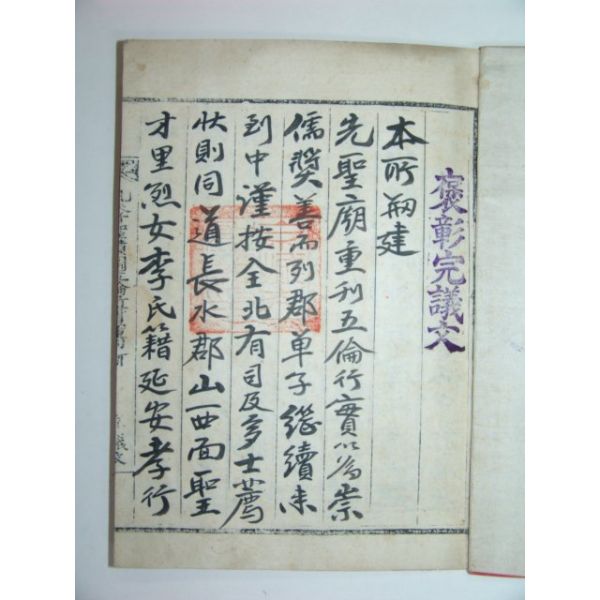 褒彰完議文
本所剏建
先聖廟重刊五倫行實以為崇
儒奬善而列郡單子繼續来
到中謹按全北有司及多士薦
狀則同道長水郡山西面聖
才里烈女李氏籍延安孝行